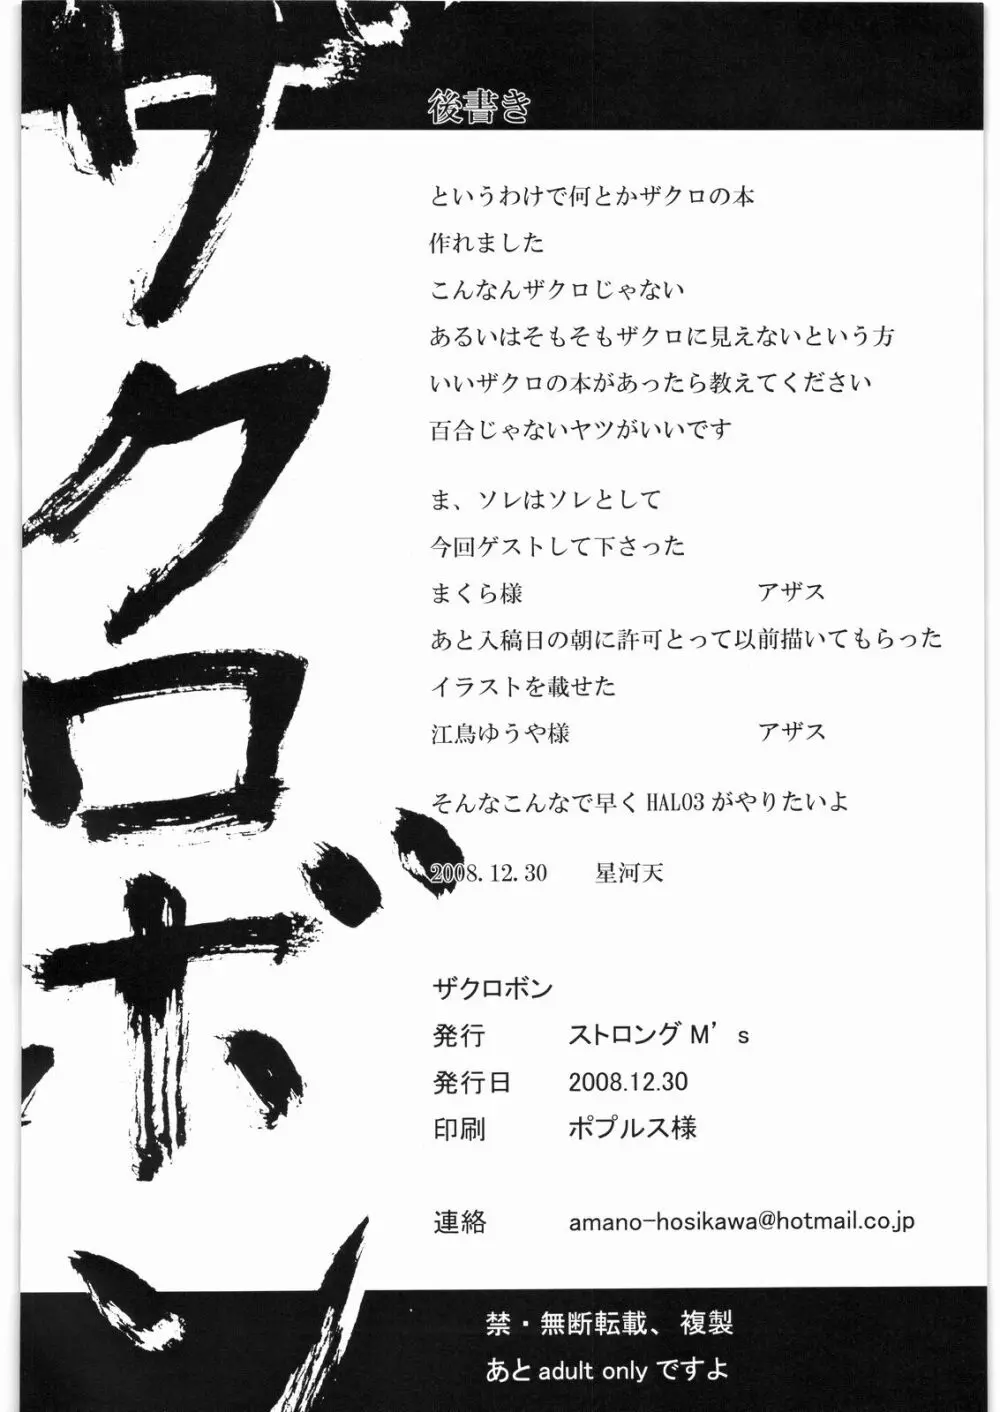 ザクロボン
後書き
というわけで何とかザクロの本
作れました
こんなんザクロじゃない
あるいはそもそもザクロに見えないという方
いいザクロの本があったら教えてください
百合じゃないヤツがいいです
ま、ソレはソレとして
今回ゲストして下さった
まくら様 アザス
あと入稿日の朝に許可とって以前描いてもらった
イラストを載せた
江鳥ゆうや様 アザス
そんなこんなで早くHALO3がやりたいよ
2008.12.30 星河天
ザクロボン
発行 ストロングM’s
発行日 2008.12.30
印刷 ポプルス様
連絡 amano-hosikawa@hotmail.co.jp
禁・無断転載、複製
あとadult onlyですよ